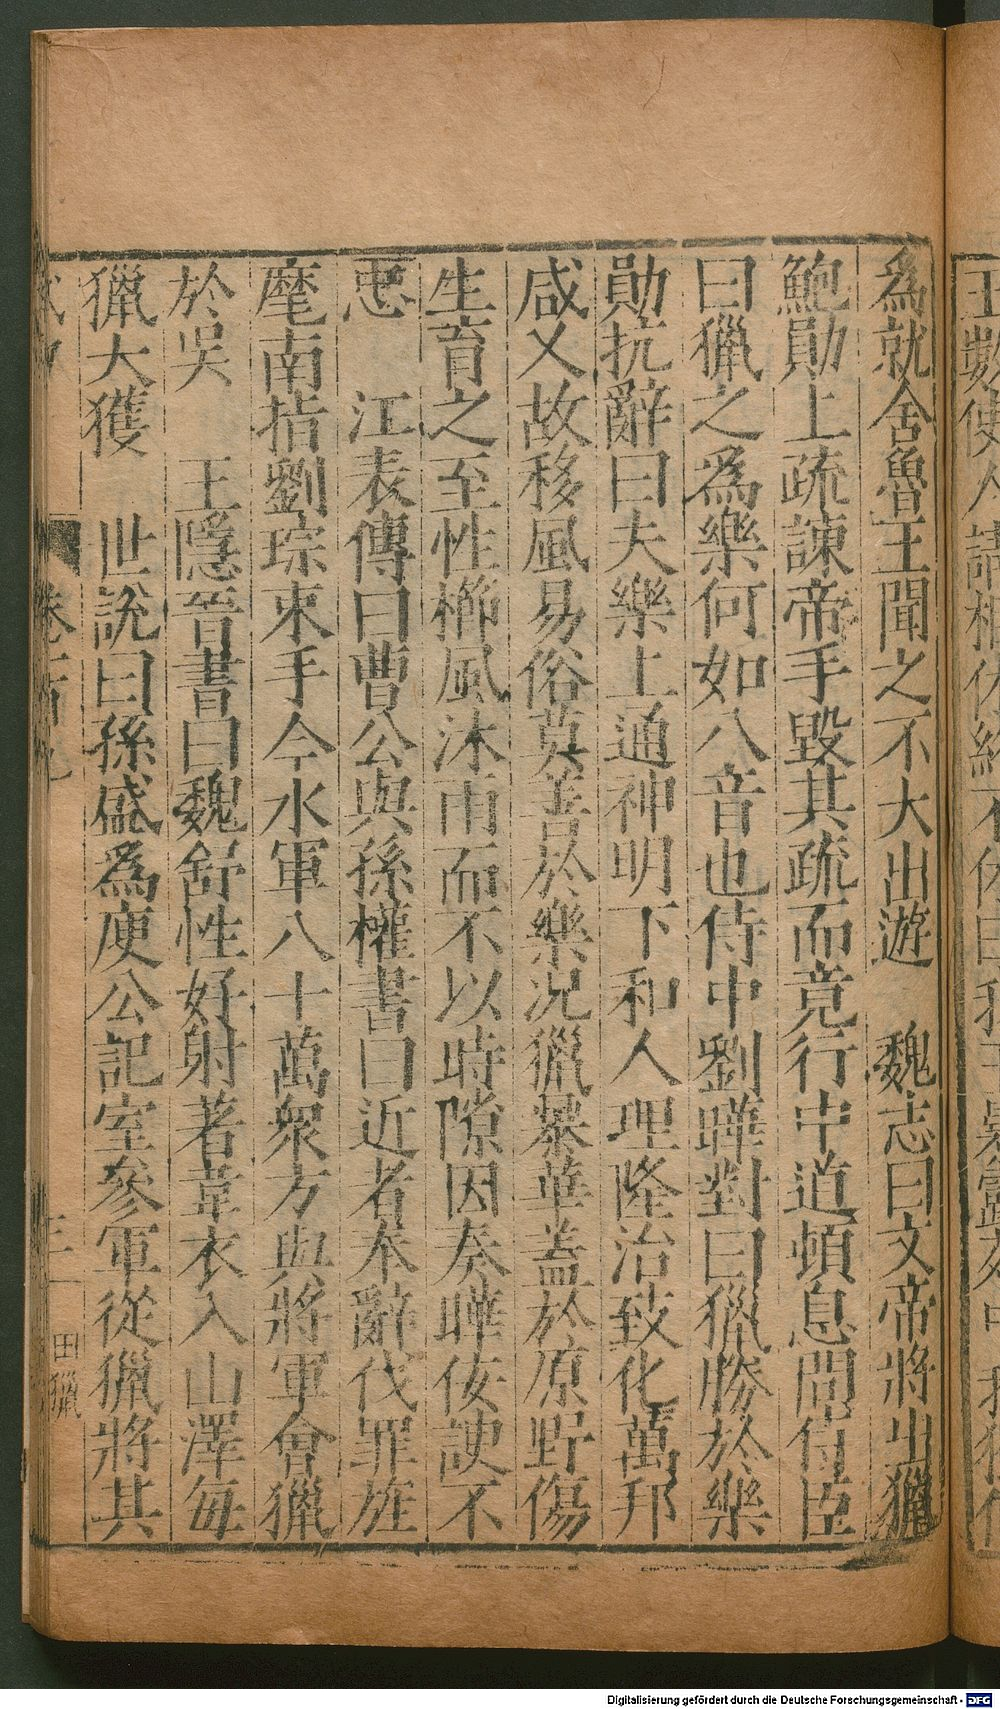 為就舍魯王聞之不大出遊　魏志曰文帝將出獵
鮑勛上疏諫帝手毀其疏而竟行中道頓息問侍臣
曰獵之為樂何如八音也侍中劉曄對曰獵勝於樂
勛抗辭曰夫樂上通神明下和人理隆治致化萬邦
咸乂故移風易俗莫善於樂況獵暴華蓋於原野傷
生育之至性櫛風沐雨而不以時隙因奏曄佞諛不
忠　江表傳曰曹公與孫權書曰近者奉辭伐罪旌
麾南指劉琮束手今水軍八十萬衆方與將軍會獵
於吳　王隱晉書曰魏舒性好射著韋衣入山澤每
獵大獲　世說曰孫盛為庾公記室參軍從獵將其
田獵
Digitalisierung gefördert durch die Deutsche Forschungsgemeinschaft - DFG